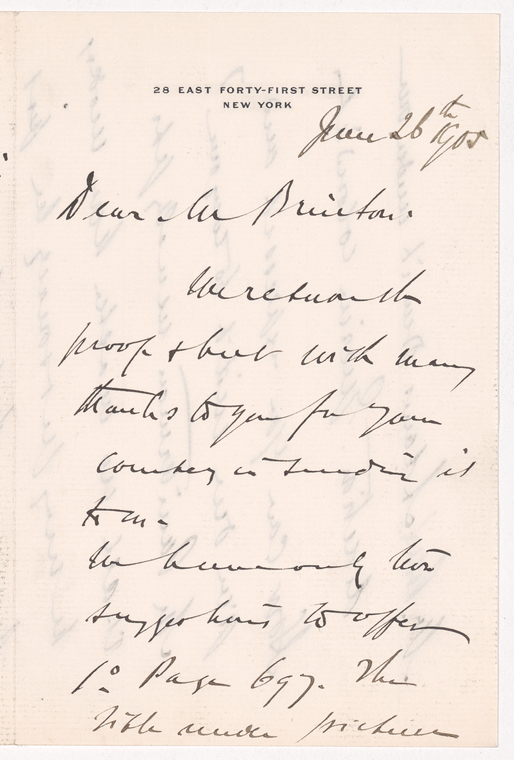 28 EAST FORTY-FIRST STREET
NEW YORK
June 26th 1905
Dear Mr Brinton.
We return the
proof sheet with many
thanks to you for your
courtesy in sending it
to us.
We have only two
suggestions to offer
1º Page 697. The
title under picture